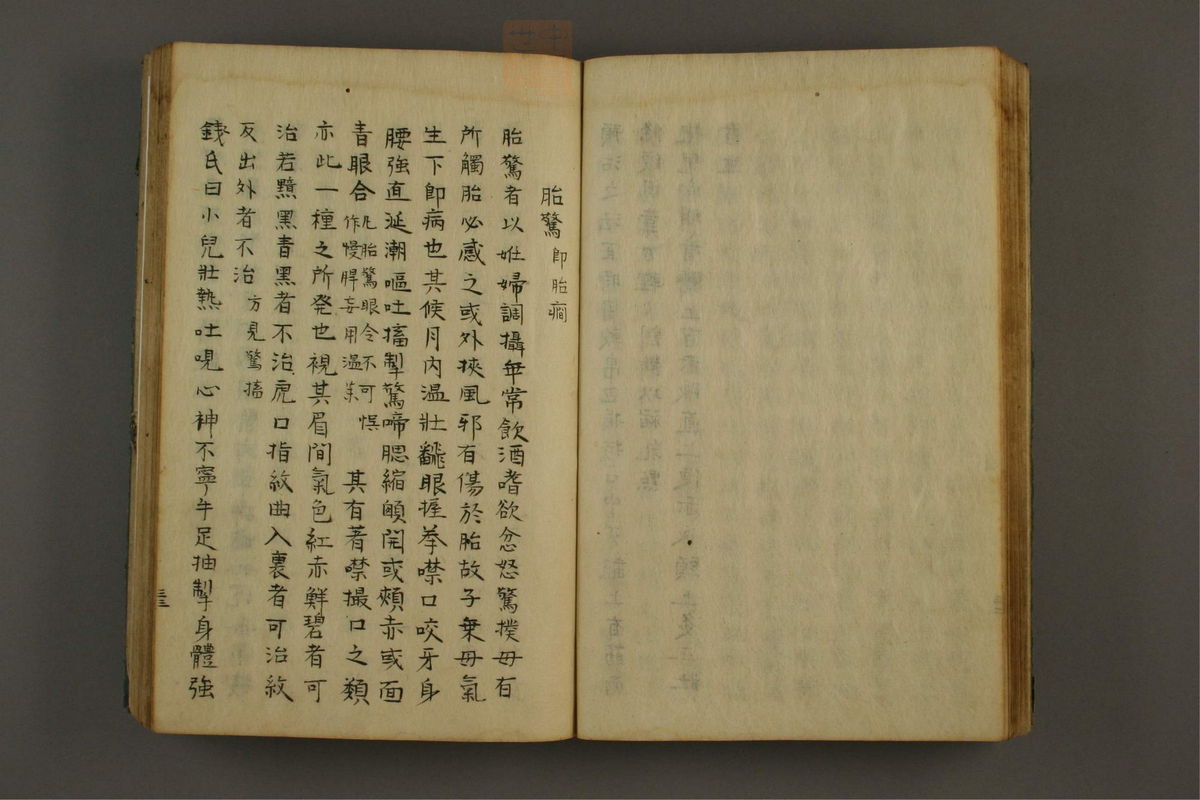 胎驚 即胎癇
胎驚者以妊婦調攝乖常飲酒嗜欲忿怒驚撲母有
所觸胎必感之或外挾風邪有傷於胎故子乗母氣
生下即病也其候月内温壯飜眼握拳噤口咬牙身
腰強直涎潮嘔吐搐掣驚啼腮縮顖開或頰赤或面
青眼合 凡胎驚眼合不可悮 作慢脾妄用温薬 其有著噤撮口之類
亦此一種之所発也視其眉間氣色紅赤鮮碧者可
治若黯黒青黒者不治虎口指紋曲入裏者可治紋
反出外者不治 方見驚搐
錢氏曰小兒壯熱吐哯心神不寧手足抽掣身體強